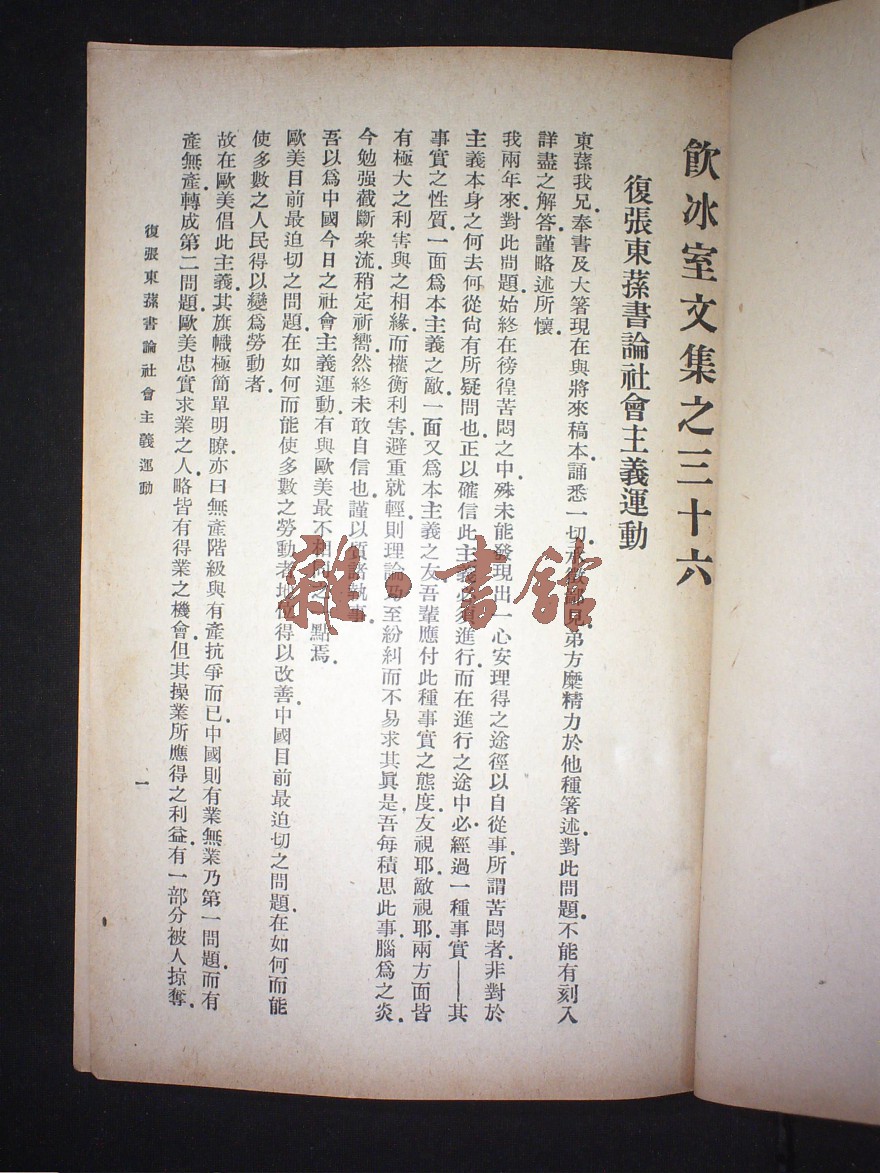 飲冰室文集之三十六
復張東蓀書論社會主義運動
東蓀我兄．奉書及大箸現在與將來稿本．誦悉一切．承徵鄙見．弟方糜精力於他種箸述．對此問題．不能有刻入
詳盡之解答．謹略述所懷．
我兩年來．對此問題．始終在徬徨苦悶之中．殊未能發現出一心安理得之途徑以自從事．所謂苦悶者．非對於
主義本身之何去何從尙有所疑問也．正以確信此主義必須進行．而在進行之途中．必經過一種事實——其
事實之性質．一面爲本主義之敵．一面又爲本主義之友．吾輩應付此種事實之態度．友視耶．敵視耶．兩方面皆
有極大之利害與之相緣．而權衡利害．避重就輕．則理論乃至紛糾而不易求其眞是．吾每積思此事．腦爲之炎．
今勉强截斷衆流．稍定祈嚮．然終未敢自信也．謹以質諸執事．
吾以爲中國今日之社會主義運動．有與歐美最不相同之一點焉．
歐美目前最迫切之問題．在如何而能使多數之勞動者地位得以改善．中國目前最迫切之問題．在如何而能
使多數之人民得以變爲勞動者．
故在歐美倡此主義．其旗幟極簡單明瞭．亦曰無產階級與有產抗爭而已．中國則有業無業乃第一問題．而有
產無產．轉成第二問題．歐美忠實求業之人．略皆有得業之機會．但其操業所應得之利益．有一部分被人掠奪．
復張東蓀書論社會主義運動
一
雜·書館